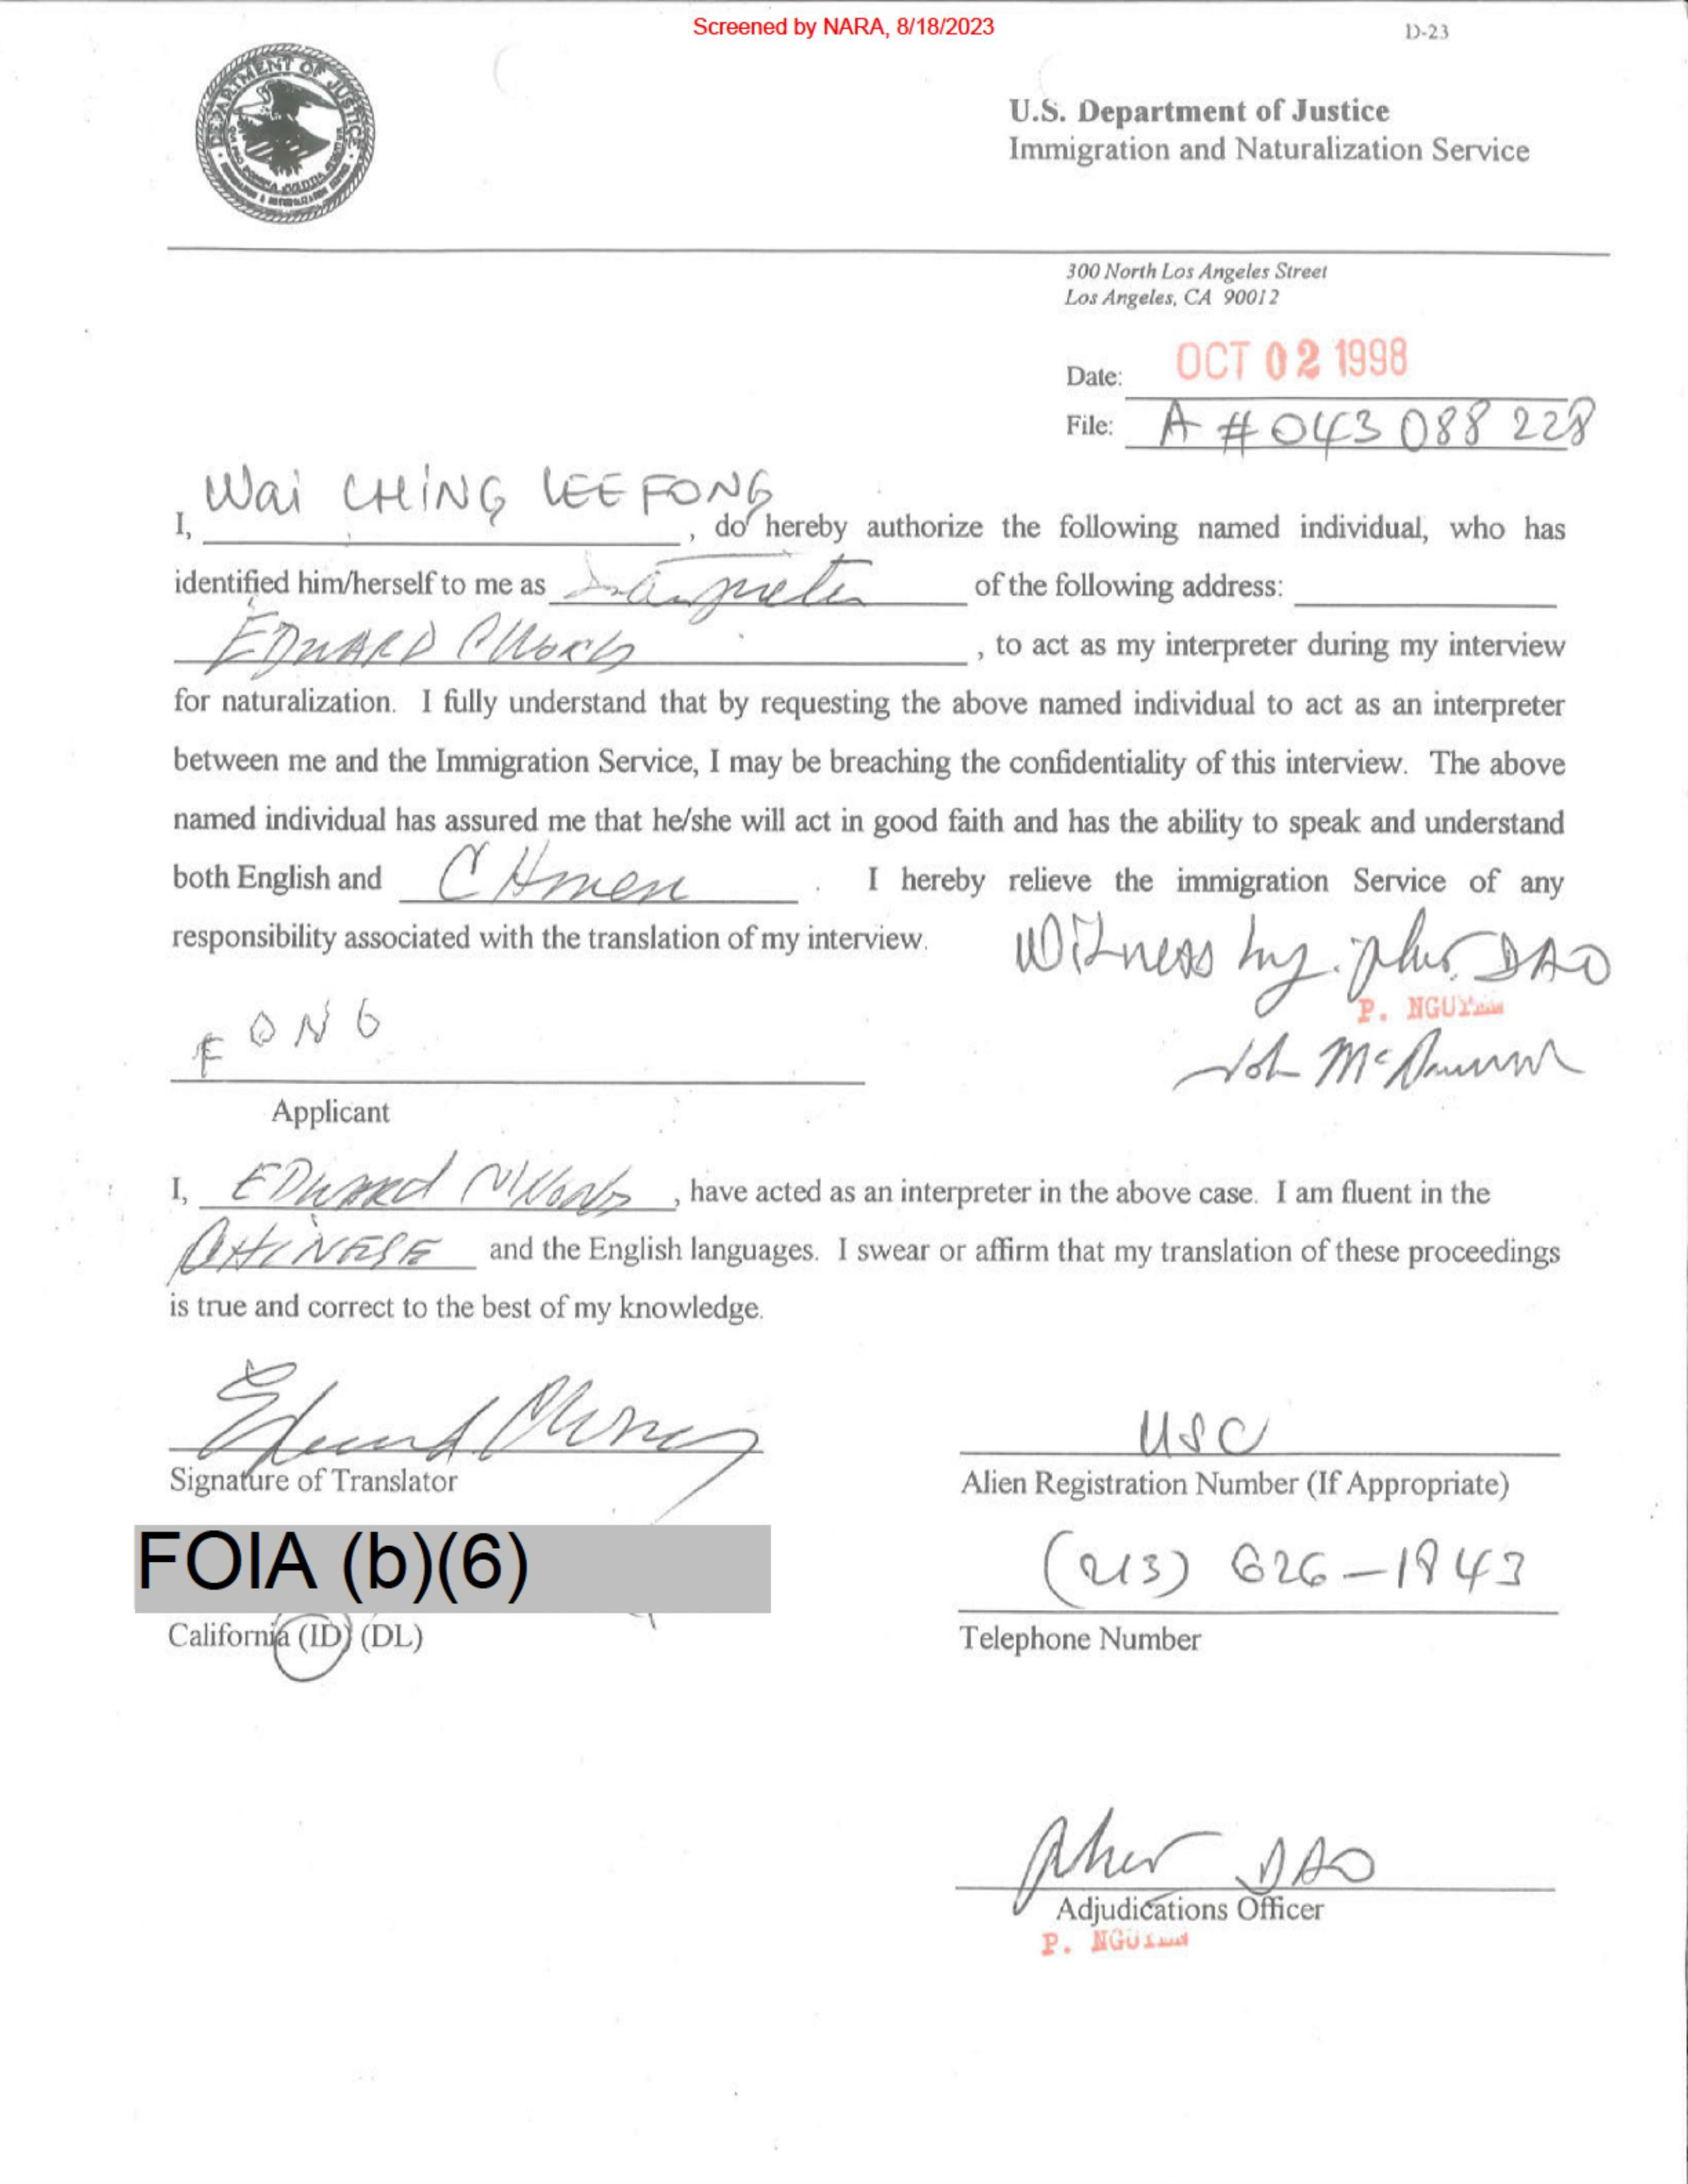 Screened by NARA, 8/18/2023
D-23
DEPARTMENT OF JUSTICE
U.S. Department of Justice
Immigration and Naturalization Service
300 North Los Angeles Street
Los Angeles, CA 90012
Date: OCT 02 1998
File: A # 043 088 228
I, Wai CHING LEE FONG, do hereby authorize the following named individual, who has
identified him/herself to me as of the following address:
EDWARD, to act as my interpreter during my interview
for naturalization. I fully understand that by requesting the above named individual to act as an interpreter
between me and the Immigration Service, I may be breaching the confidentiality of this interview. The above
named individual has assured me that he/she will act in good faith and has the ability to speak and understand
both English and . I hereby relieve the immigration Service of any
responsibility associated with the translation of my interview.
Witness by. DAO
P.
FONG
Applicant
I, EDward, have acted as an interpreter in the above case. I am fluent in the
CHINESE and the English languages. I swear or affirm that my translation of these proceedings
is true and correct to the best of my knowledge.
Signature of Translator
USC
Alien Registration Number (If Appropriate)
FOIA (b)(6)
(213) 626-1943
California (ID) (DL)
Telephone Number
DAO
Adjudications Officer
P.